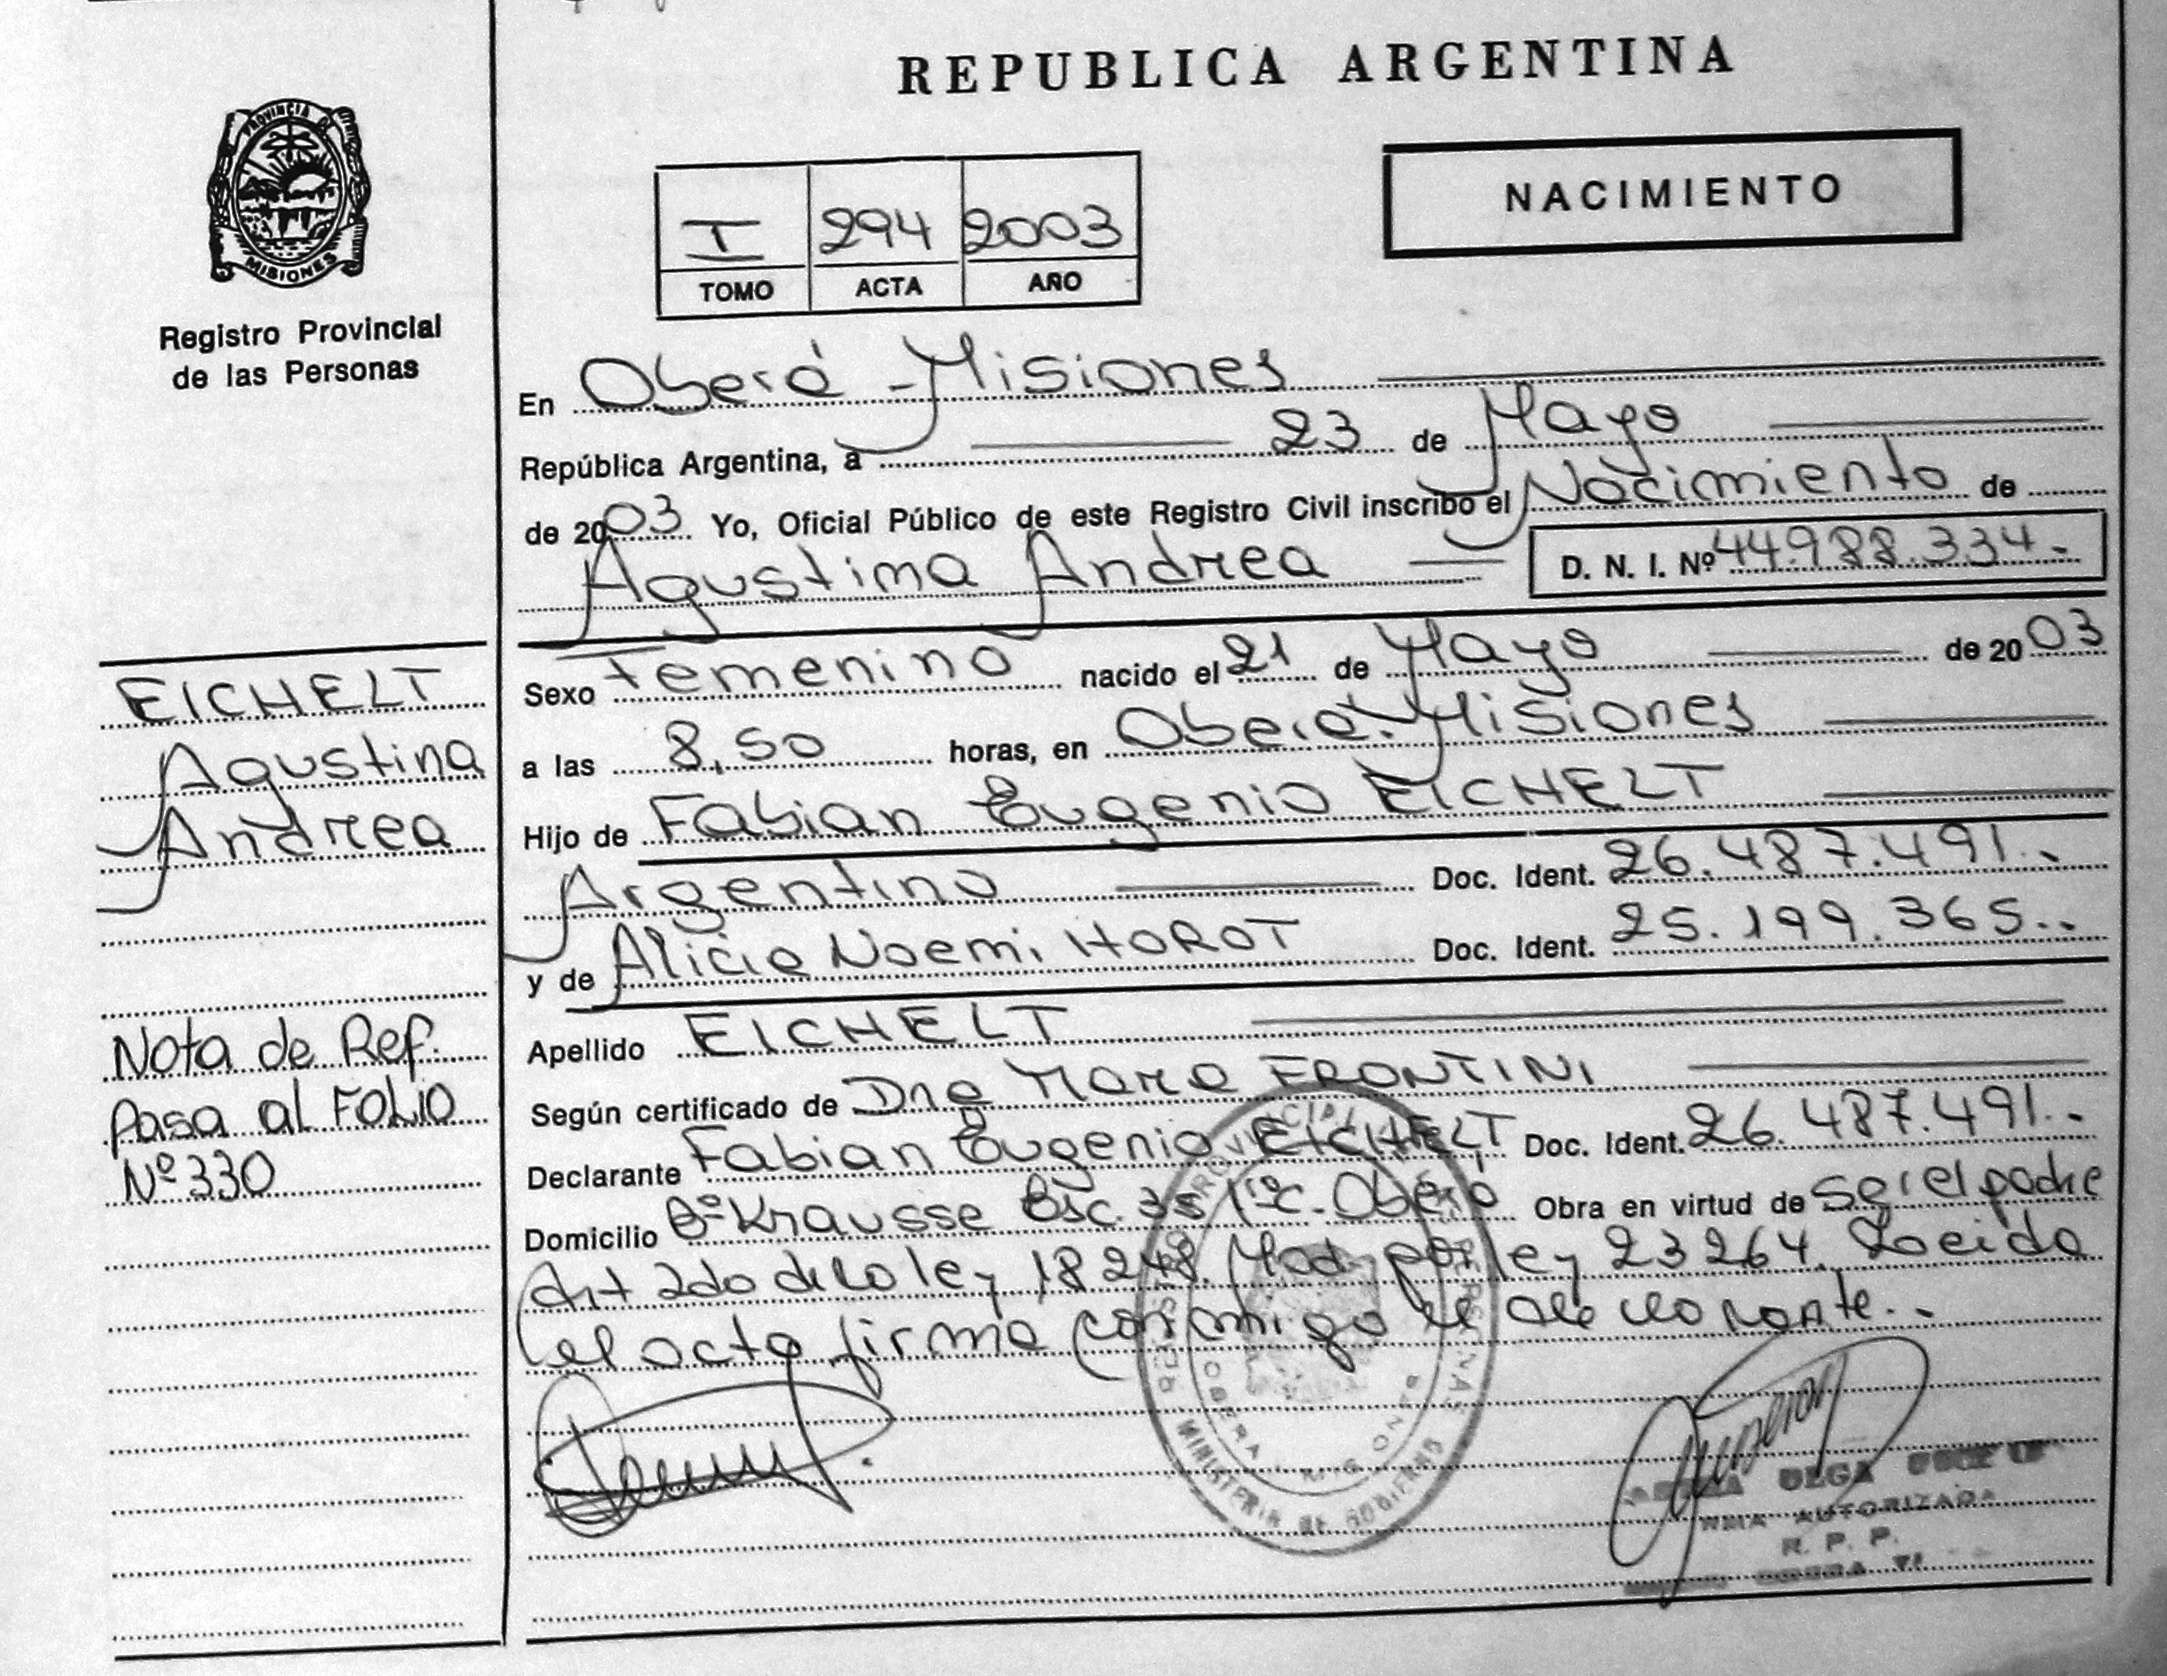 REPUBLICA ARGENTINA
PROVINCIA DE
MISIONES
Registro Provincial
de las Personas
NACIMIENTO
I 294 2003
TOMO ACTA AÑO
En Oberá - Misiones
República Argentina, a 23 de Mayo
de 2003 Yo, Oficial Público de este Registro Civil inscribo el Nacimiento de
Agustina Andrea
D. N. I. Nº 44.988.334.-
Sexo Femenino nacido el 21 de Mayo de 2003
a las 8,50 horas, en Oberá. Misiones
Hijo de Fabian Eugenio EICHELT
Argentino Doc. Ident. 26.487.491.-
y de Alicia Noemi HOROT Doc. Ident. 25.199.365.-
Apellido EICHELT
Según certificado de Dra Mara FRONTINI
Declarante Fabian Eugenio EICHELT Doc. Ident. 26.487.491.-
Domicilio Bº Krausse Esc. 35 Oberá Obra en virtud de ser el padre
Art 2do de la ley 18248. Mod. por ley 23264. Leida
el acta firma conmigo el declarante.-
EICHELT
Agustina
Andrea
Nota de Ref.
pasa al FOLIO
Nº 330
OBERA MISIONES
MINISTERIO DE GOBIERNO
OLGA
AUTORIZADA
R. P. P.